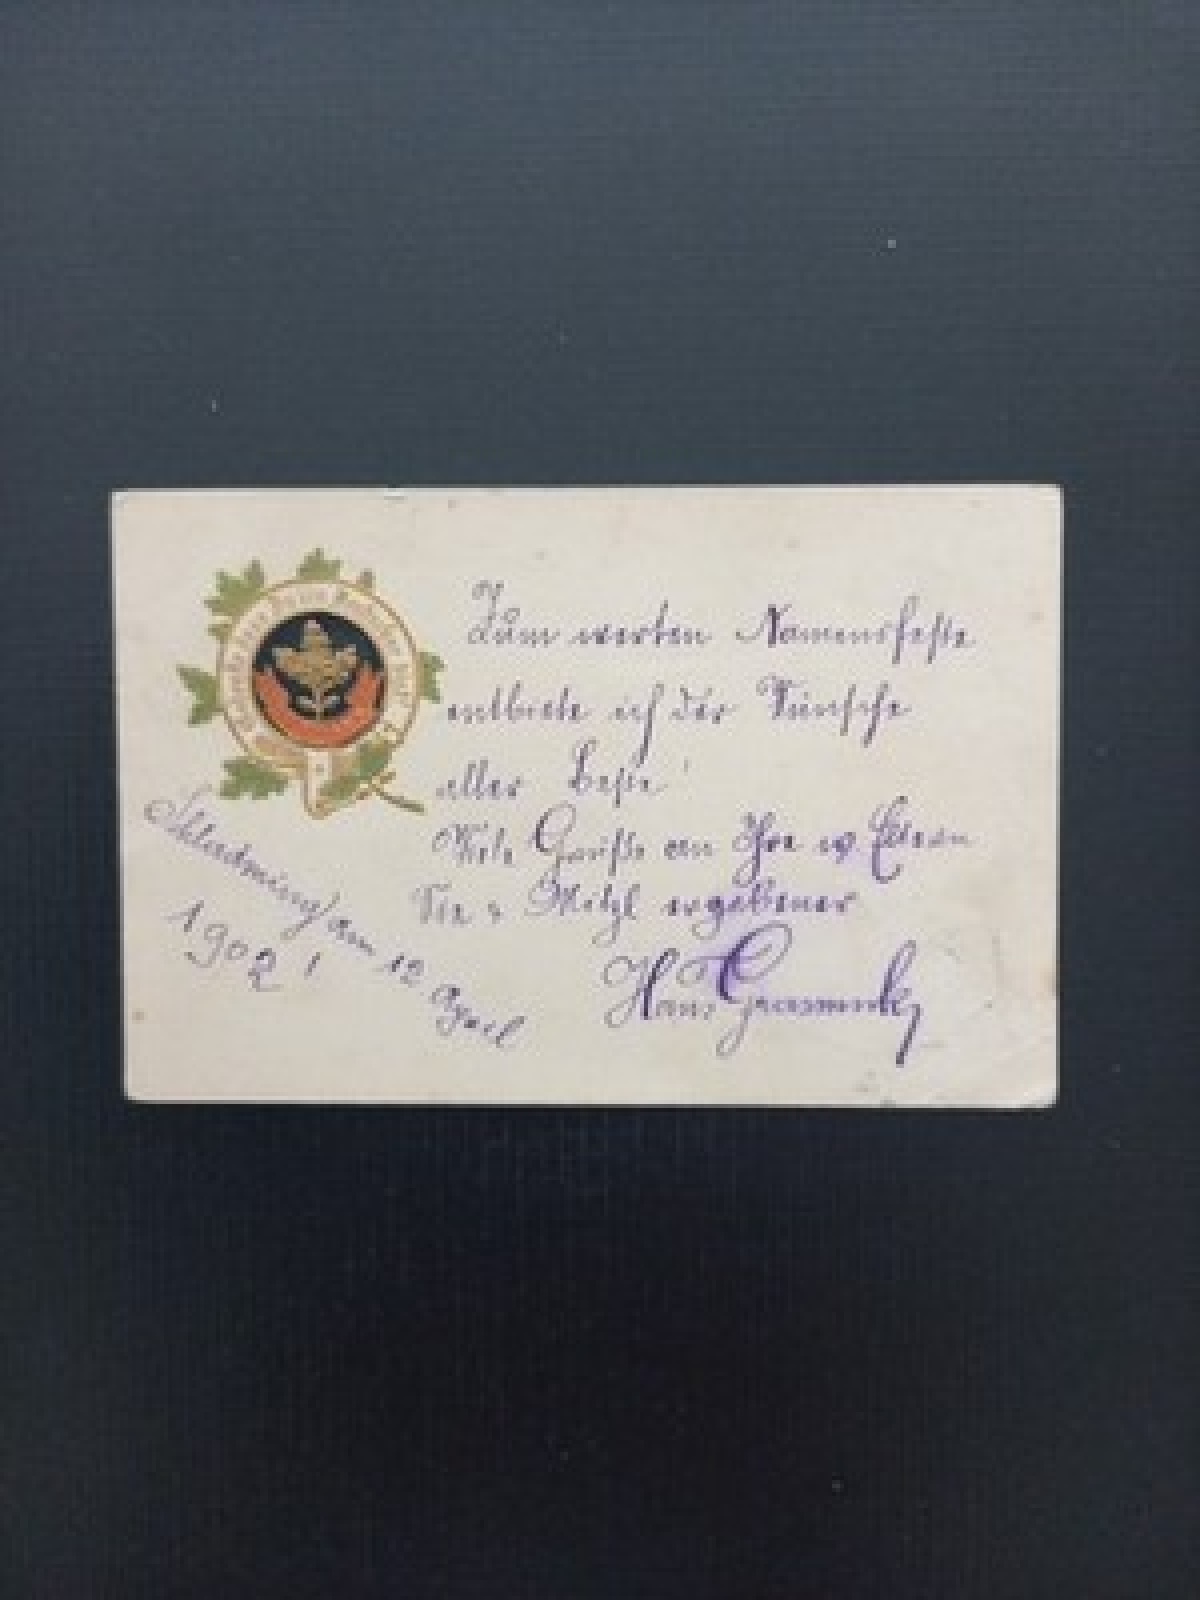 Zum werten Namensfeste
entbiete ich der Wünsche
aller Beste!
Viele Grüße an Ihre w. Eltern
Sie u Mitzl ergebener
Hans
Schladming am 12. April
1902!